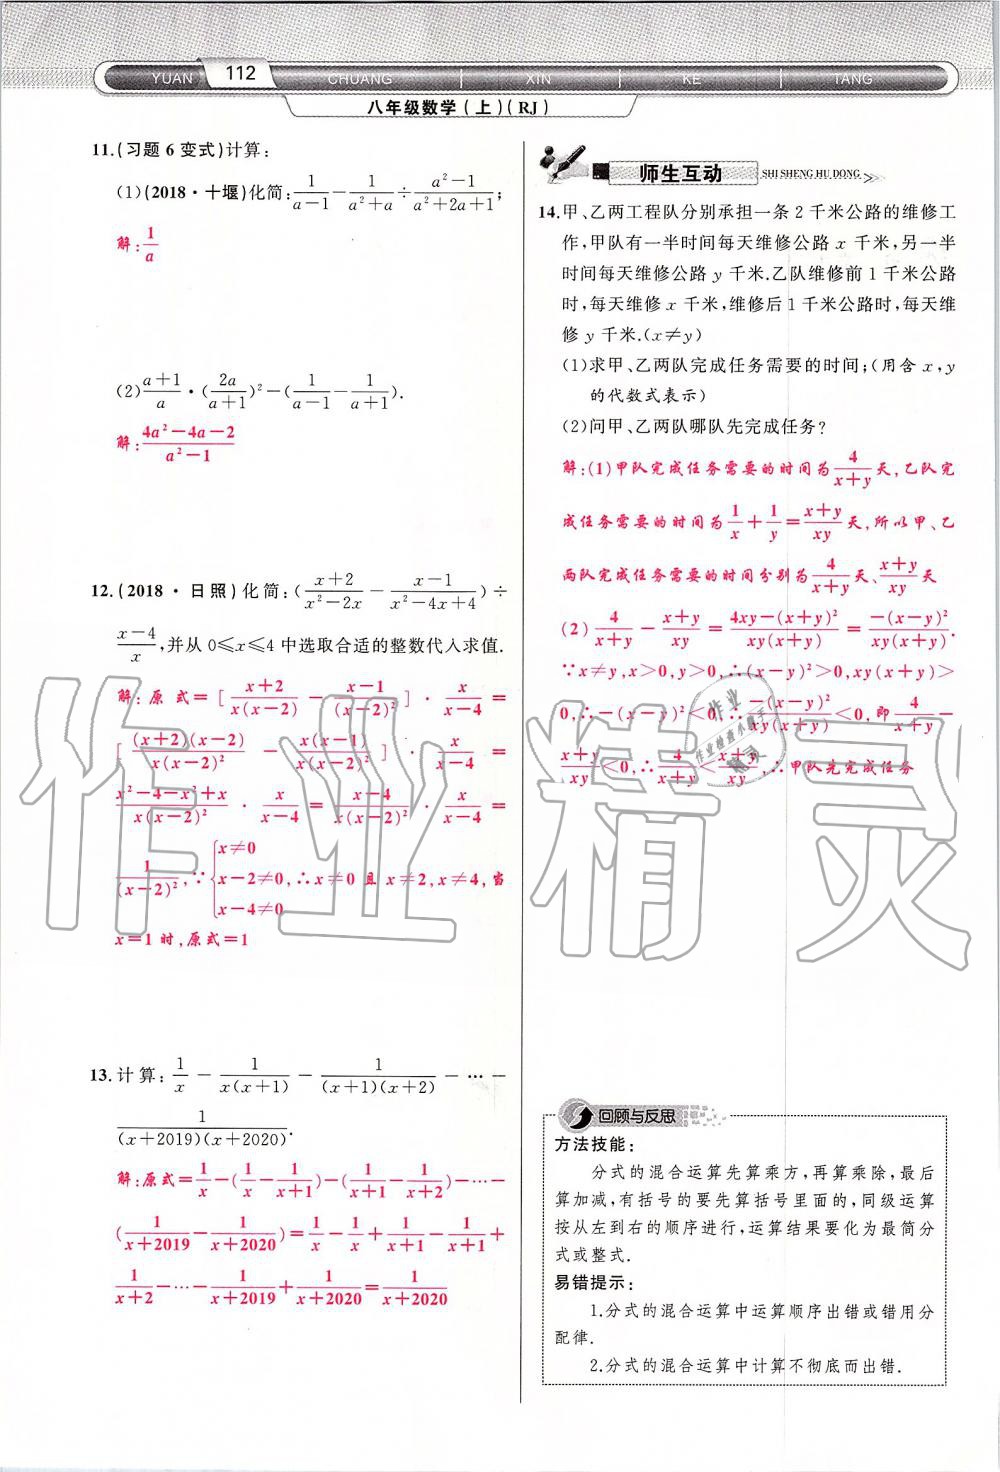 YUAN 112 CHUANG XIN KE TANG
八年级数学(上)(RJ)
11.(习题6变式)计算:
(1)(2018·十堰)化简:1/(a-1)-1/(a²+a)÷(a²-1)/(a²+2a+1);
解:1/a
(2)(a+1)/a·(2a/(a+1))²-(1/(a-1)-1/(a+1)).
解:(4a²-4a-2)/(a²-1)
12.(2018·日照)化简:((x+2)/(x²-2x)-(x-1)/(x²-4x+4))÷
(x-4)/x,并从0≤x≤4中选取合适的整数代入求值.
解:原式=[(x+2)/(x(x-2))-(x-1)/(x-2)²]·x/(x-4)=
[(x+2)(x-2)/(x(x-2)²)-x(x-1)/(x(x-2)²)]·x/(x-4)=
(x²-4-x²+x)/(x(x-2)²)·x/(x-4)=(x-4)/(x(x-2)²)·x/(x-4)=
1/(x-2)²,∵{x≠0
x-2≠0,∴x≠0且x≠2,x≠4,当
x-4≠0
x=1时,原式=1
13.计算:1/x-1/(x(x+1))-1/((x+1)(x+2))-…-
1/((x+2019)(x+2020)).
解:原式=1/x-(1/x-1/(x+1))-(1/(x+1)-1/(x+2))-…-
(1/(x+2019)-1/(x+2020))=1/x-1/x+1/(x+1)-1/(x+1)+
1/(x+2)-…-1/(x+2019)+1/(x+2020)=1/(x+2020)
师生互动 SHI SHENG HU DONG
14.甲、乙两工程队分别承担一条2千米公路的维修工
作,甲队有一半时间每天维修公路x千米,另一半
时间每天维修公路y千米.乙队维修前1千米公路
时,每天维修x千米,维修后1千米公路时,每天维
修y千米.(x≠y)
(1)求甲、乙两队完成任务需要的时间;(用含x,y
的代数式表示)
(2)问甲、乙两队哪队先完成任务?
解:(1)甲队完成任务需要的时间为4/(x+y)天,乙队完
成任务需要的时间为1/x+1/y=(x+y)/xy天,所以甲、乙
两队完成任务需要的时间分别为4/(x+y)天、(x+y)/xy天
(2)4/(x+y)-(x+y)/xy=(4xy-(x+y)²)/(xy(x+y))=-(x-y)²/(xy(x+y)).
∵x≠y,x>0,y>0,∴(x-y)²>0,xy(x+y)>
0,∴-(x-y)²<0,∴-(x-y)²/(xy(x+y))<0,即4/(x+y)-
(x+y)/xy<0,∴4/(x+y)<(x+y)/xy,∴甲队先完成任务
回顾与反思
方法技能:
分式的混合运算先算乘方,再算乘除,最后
算加减,有括号的要先算括号里面的,同级运算
按从左到右的顺序进行,运算结果要化为最简分
式或整式.
易错提示:
1.分式的混合运算中运算顺序出错或错用分
配律.
2.分式的混合运算中计算不彻底而出错.
作业精灵